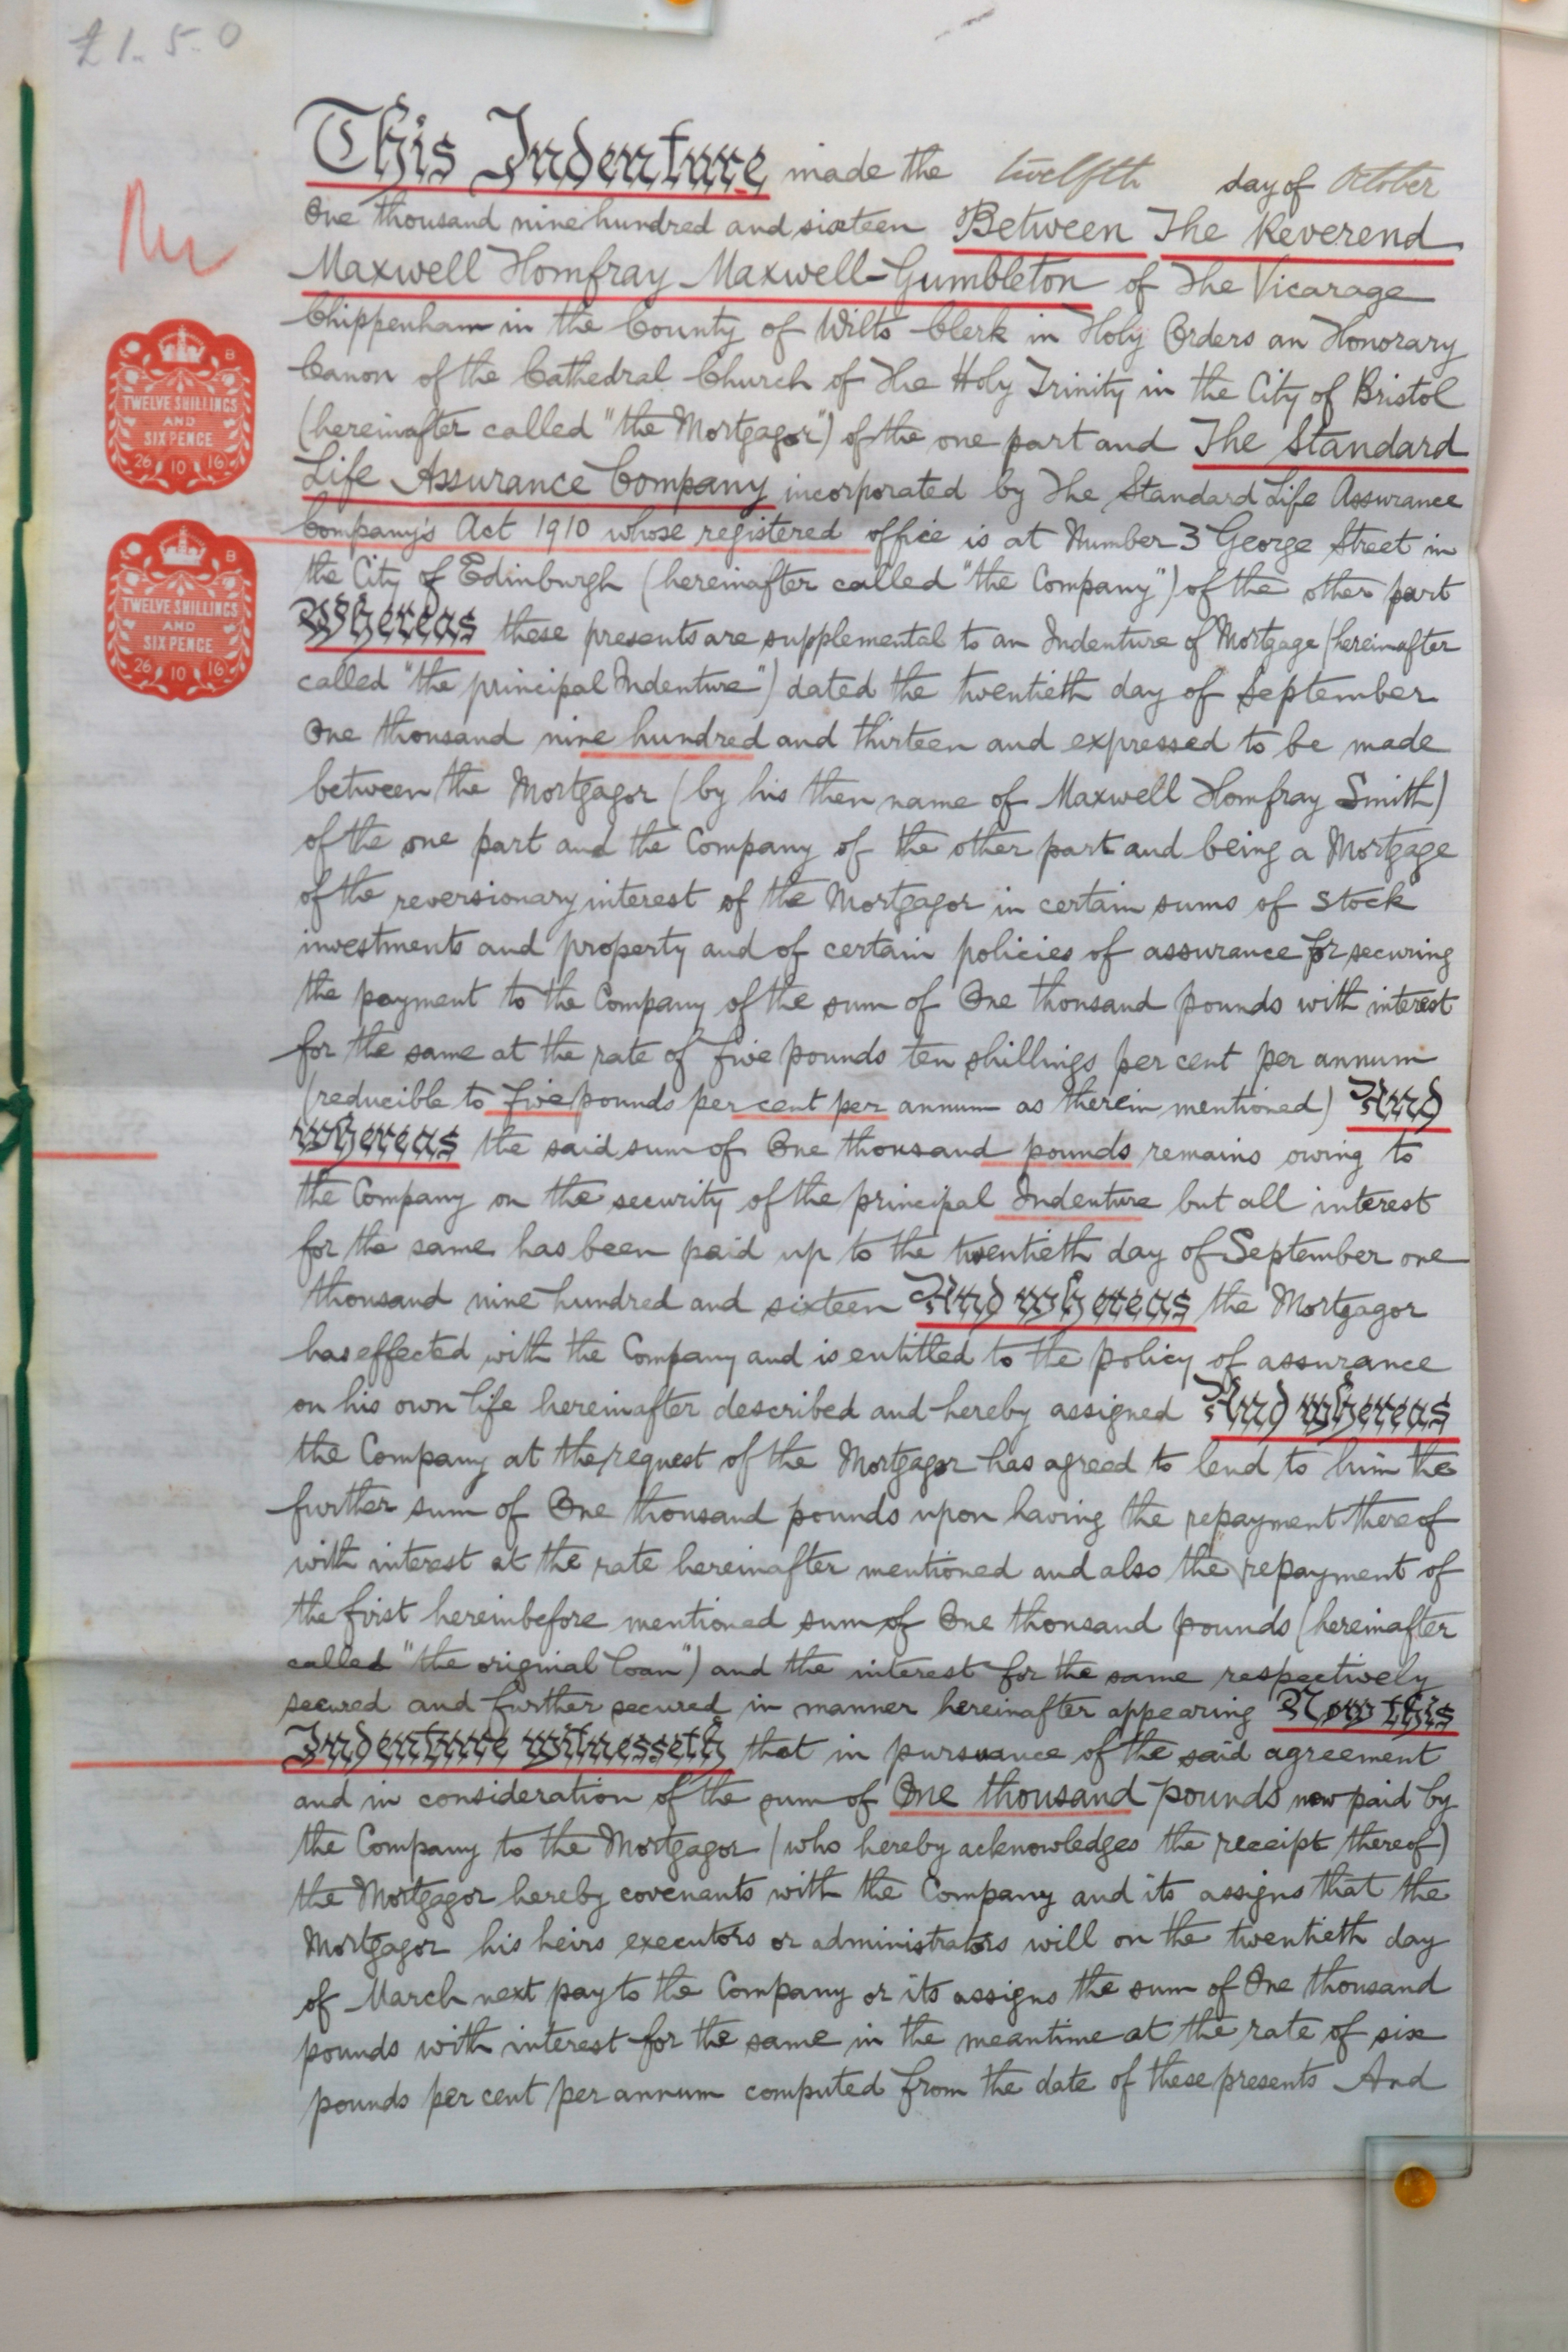 £1. 5. 0
This Indenture made the twelfth day of October
One thousand nine hundred and sixteen Between The Reverend
Maxwell Homfray Maxwell-Gumbleton of The Vicarage
Chippenham in the County of Wilts Clerk in Holy Orders an Honorary
Canon of the Cathedral Church of The Holy Trinity in the City of Bristol
(hereinafter called "the Mortgagor") of the one part and The Standard
Life Assurance Company incorporated by The Standard Life Assurance
Company's Act 1910 whose registered office is at Number 3 George Street in
the City of Edinburgh (hereinafter called "the Company") of the other part
Whereas these presents are supplemental to an Indenture of Mortgage (hereinafter
called "the principal Indenture") dated the twentieth day of September
One thousand nine hundred and thirteen and expressed to be made
between the Mortgagor (by his then name of Maxwell Homfray Smith)
of the one part and the Company of the other part and being a Mortgage
of the reversionary interest of the Mortgagor in certain sums of stock
investments and property and of certain policies of assurance for securing
the payment to the Company of the sum of One thousand pounds with interest
for the same at the rate of five pounds ten shillings per cent per annum
(reducible to five pounds per cent per annum as therein mentioned) And
whereas the said sum of One thousand pounds remains owing to
the Company on the security of the principal Indenture but all interest
for the same has been paid up to the twentieth day of September one
thousand nine hundred and sixteen And whereas the Mortgagor
has effected with the Company and is entitled to the policy of assurance
on his own life hereinafter described and hereby assigned And whereas
the Company at the request of the Mortgagor has agreed to lend to him the
further sum of One thousand pounds upon having the repayment thereof
with interest at the rate hereinafter mentioned and also the repayment of
the first hereinbefore mentioned sum of One thousand pounds (hereinafter
called "the original loan") and the interest for the same respectively
secured and further secured in manner hereinafter appearing Now this
Indenture witnesseth that in pursuance of the said agreement
and in consideration of the sum of One thousand pounds now paid by
the Company to the Mortgagor (who hereby acknowledges the receipt thereof)
the Mortgagor hereby covenants with the Company and its assigns that the
Mortgagor his heirs executors or administrators will on the twentieth day
of March next pay to the Company or its assigns the sum of One thousand
pounds with interest for the same in the meantime at the rate of six
pounds per cent per annum computed from the date of these presents And
B
TWELVE SHILLINGS
AND
SIXPENCE
26 10 16
B
TWELVE SHILLINGS
AND
SIXPENCE
26 10 16